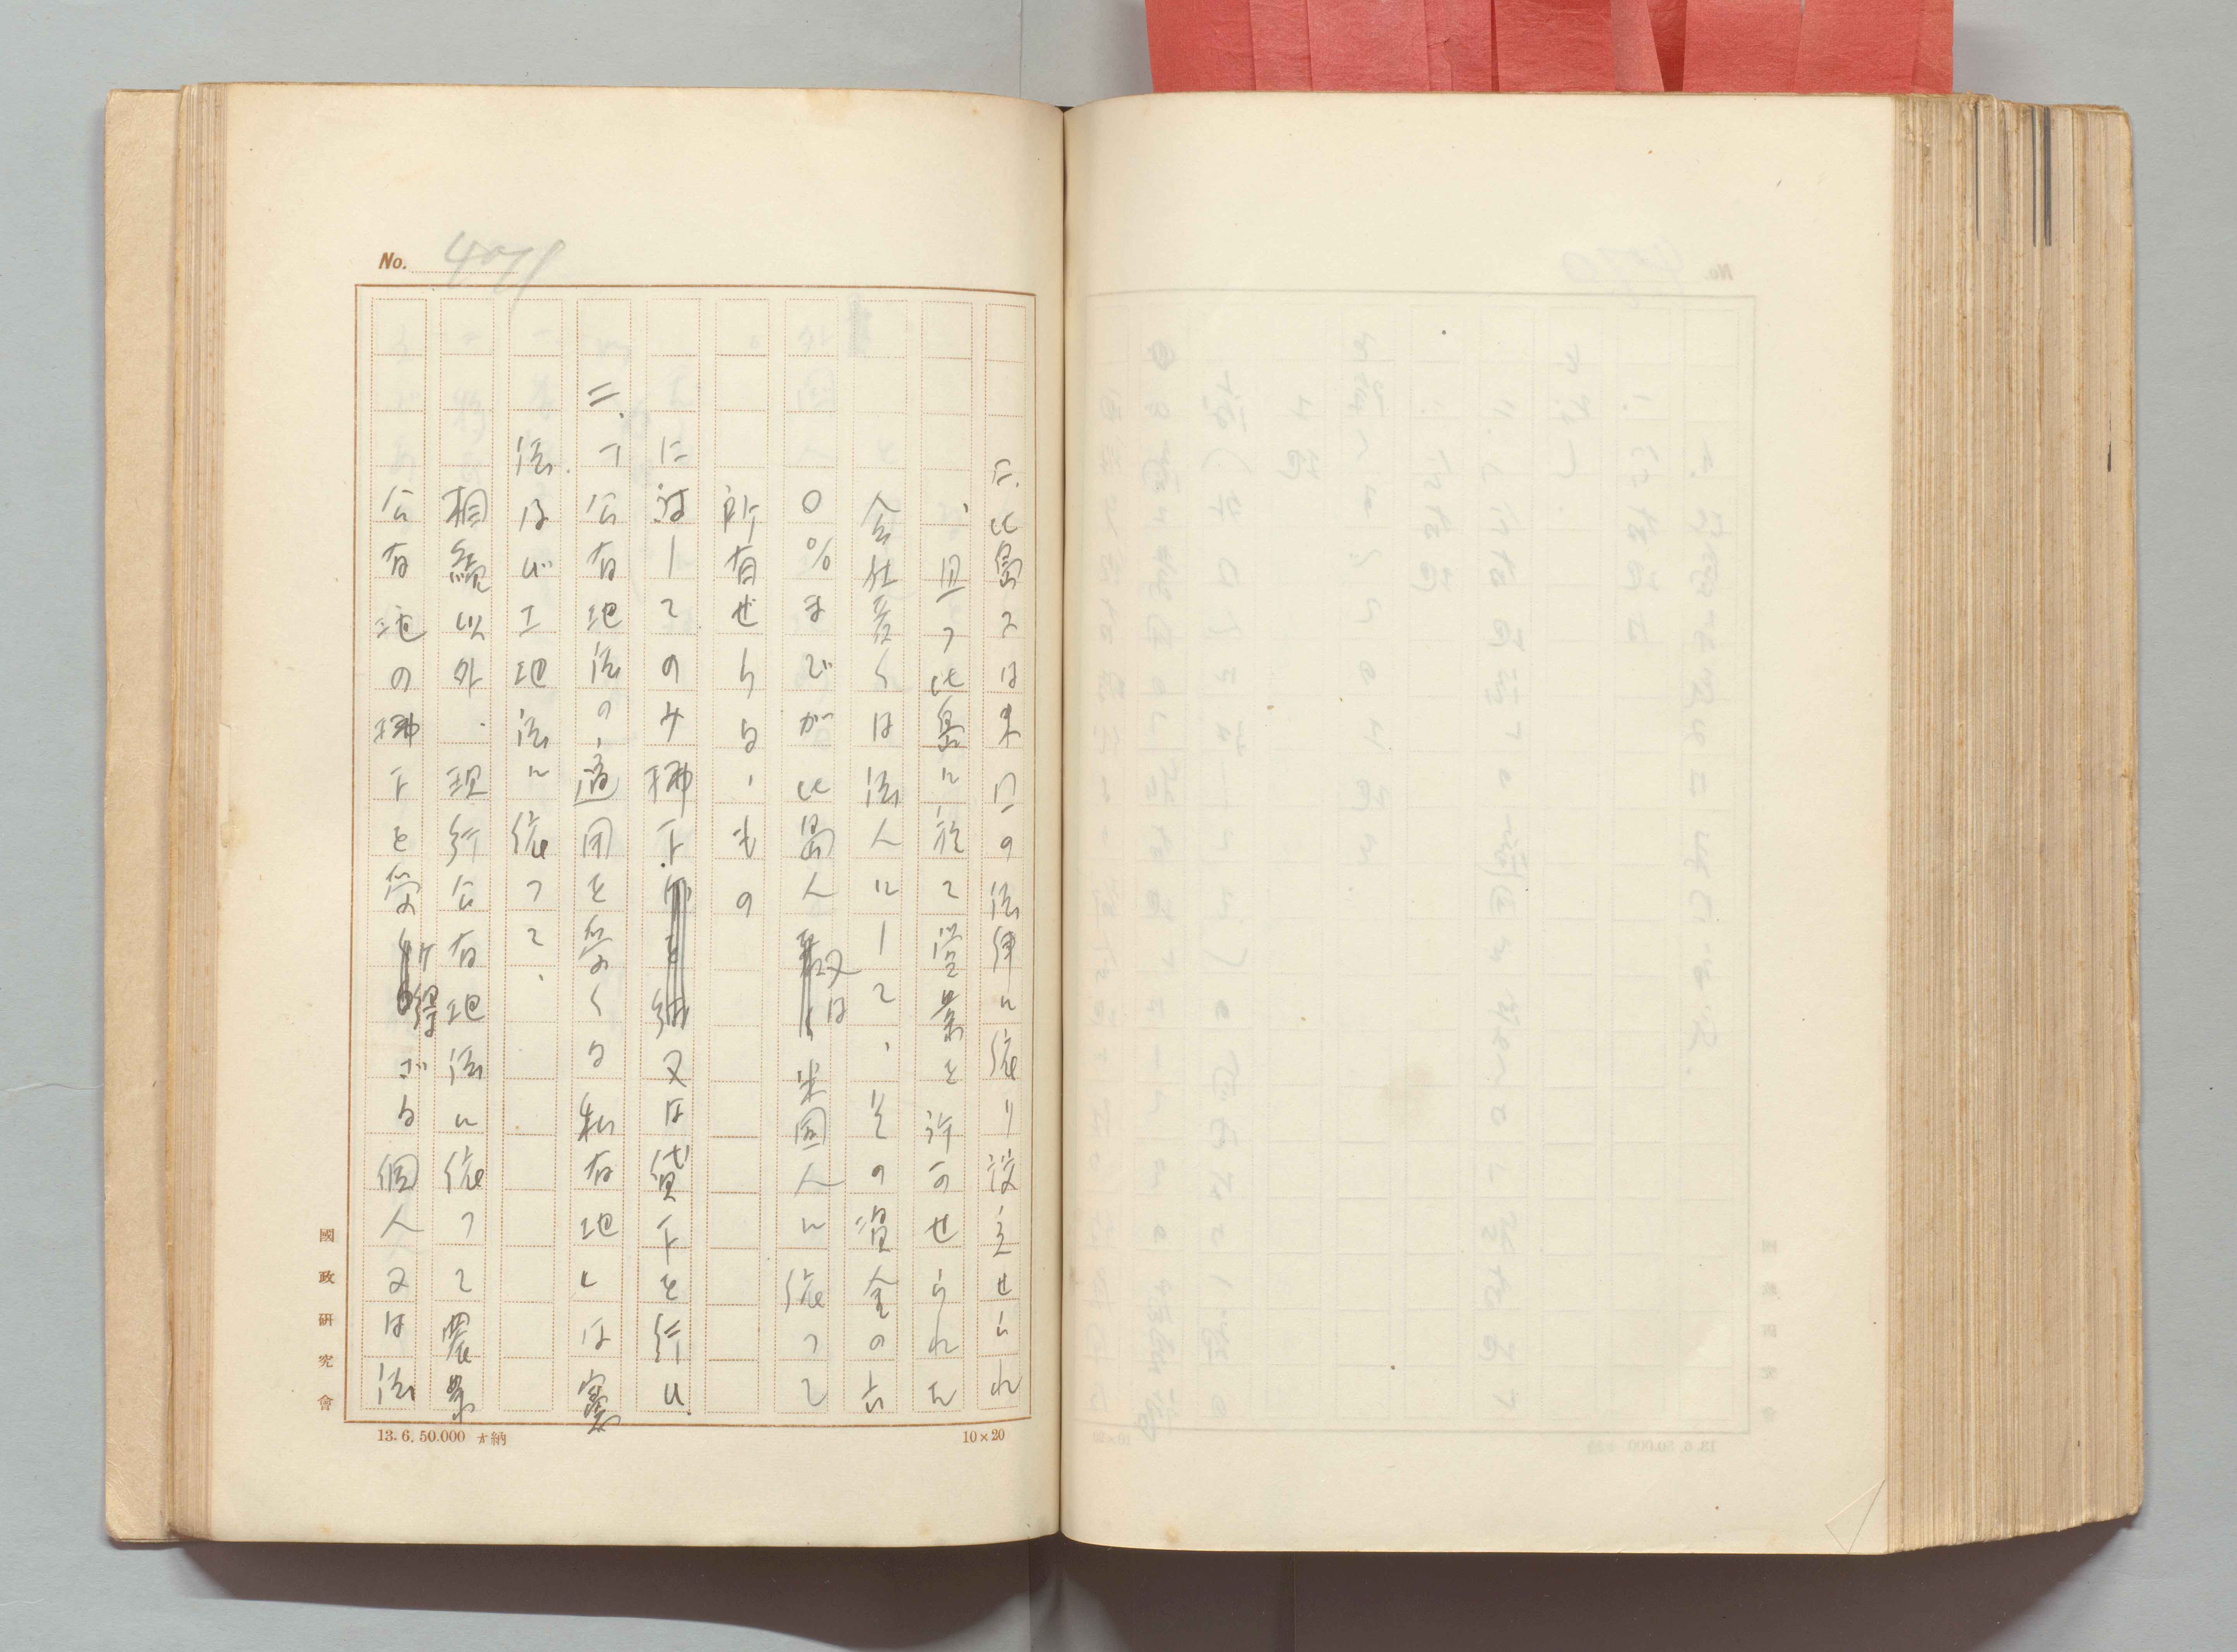 No. 4071
ニ.比島又は米国の法律に依り設立せられ
、且つ比島に於て営業を許可せられたる
会社若くは法人にして、其の資金の六
〇%までが比島人又は米国人に依つて
所有せらる、もの
に対してのみ払下又は貸下を行ひ
二.「公有地法の適用を受くる私有地とは
法.は「土地法に依つて、
相続以外、現行公有地法に依つて農業
公有地の払下を受け得ざる個人又は法
國政研究會
13.6.50.000 納
10×20